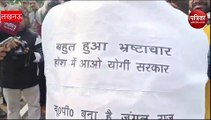 लखनऊ
पत्रिका
बहुत हुआ भ्रष्टाचार
होश में आओ योगी सरकार
यू०पी० बना है जंगल राज